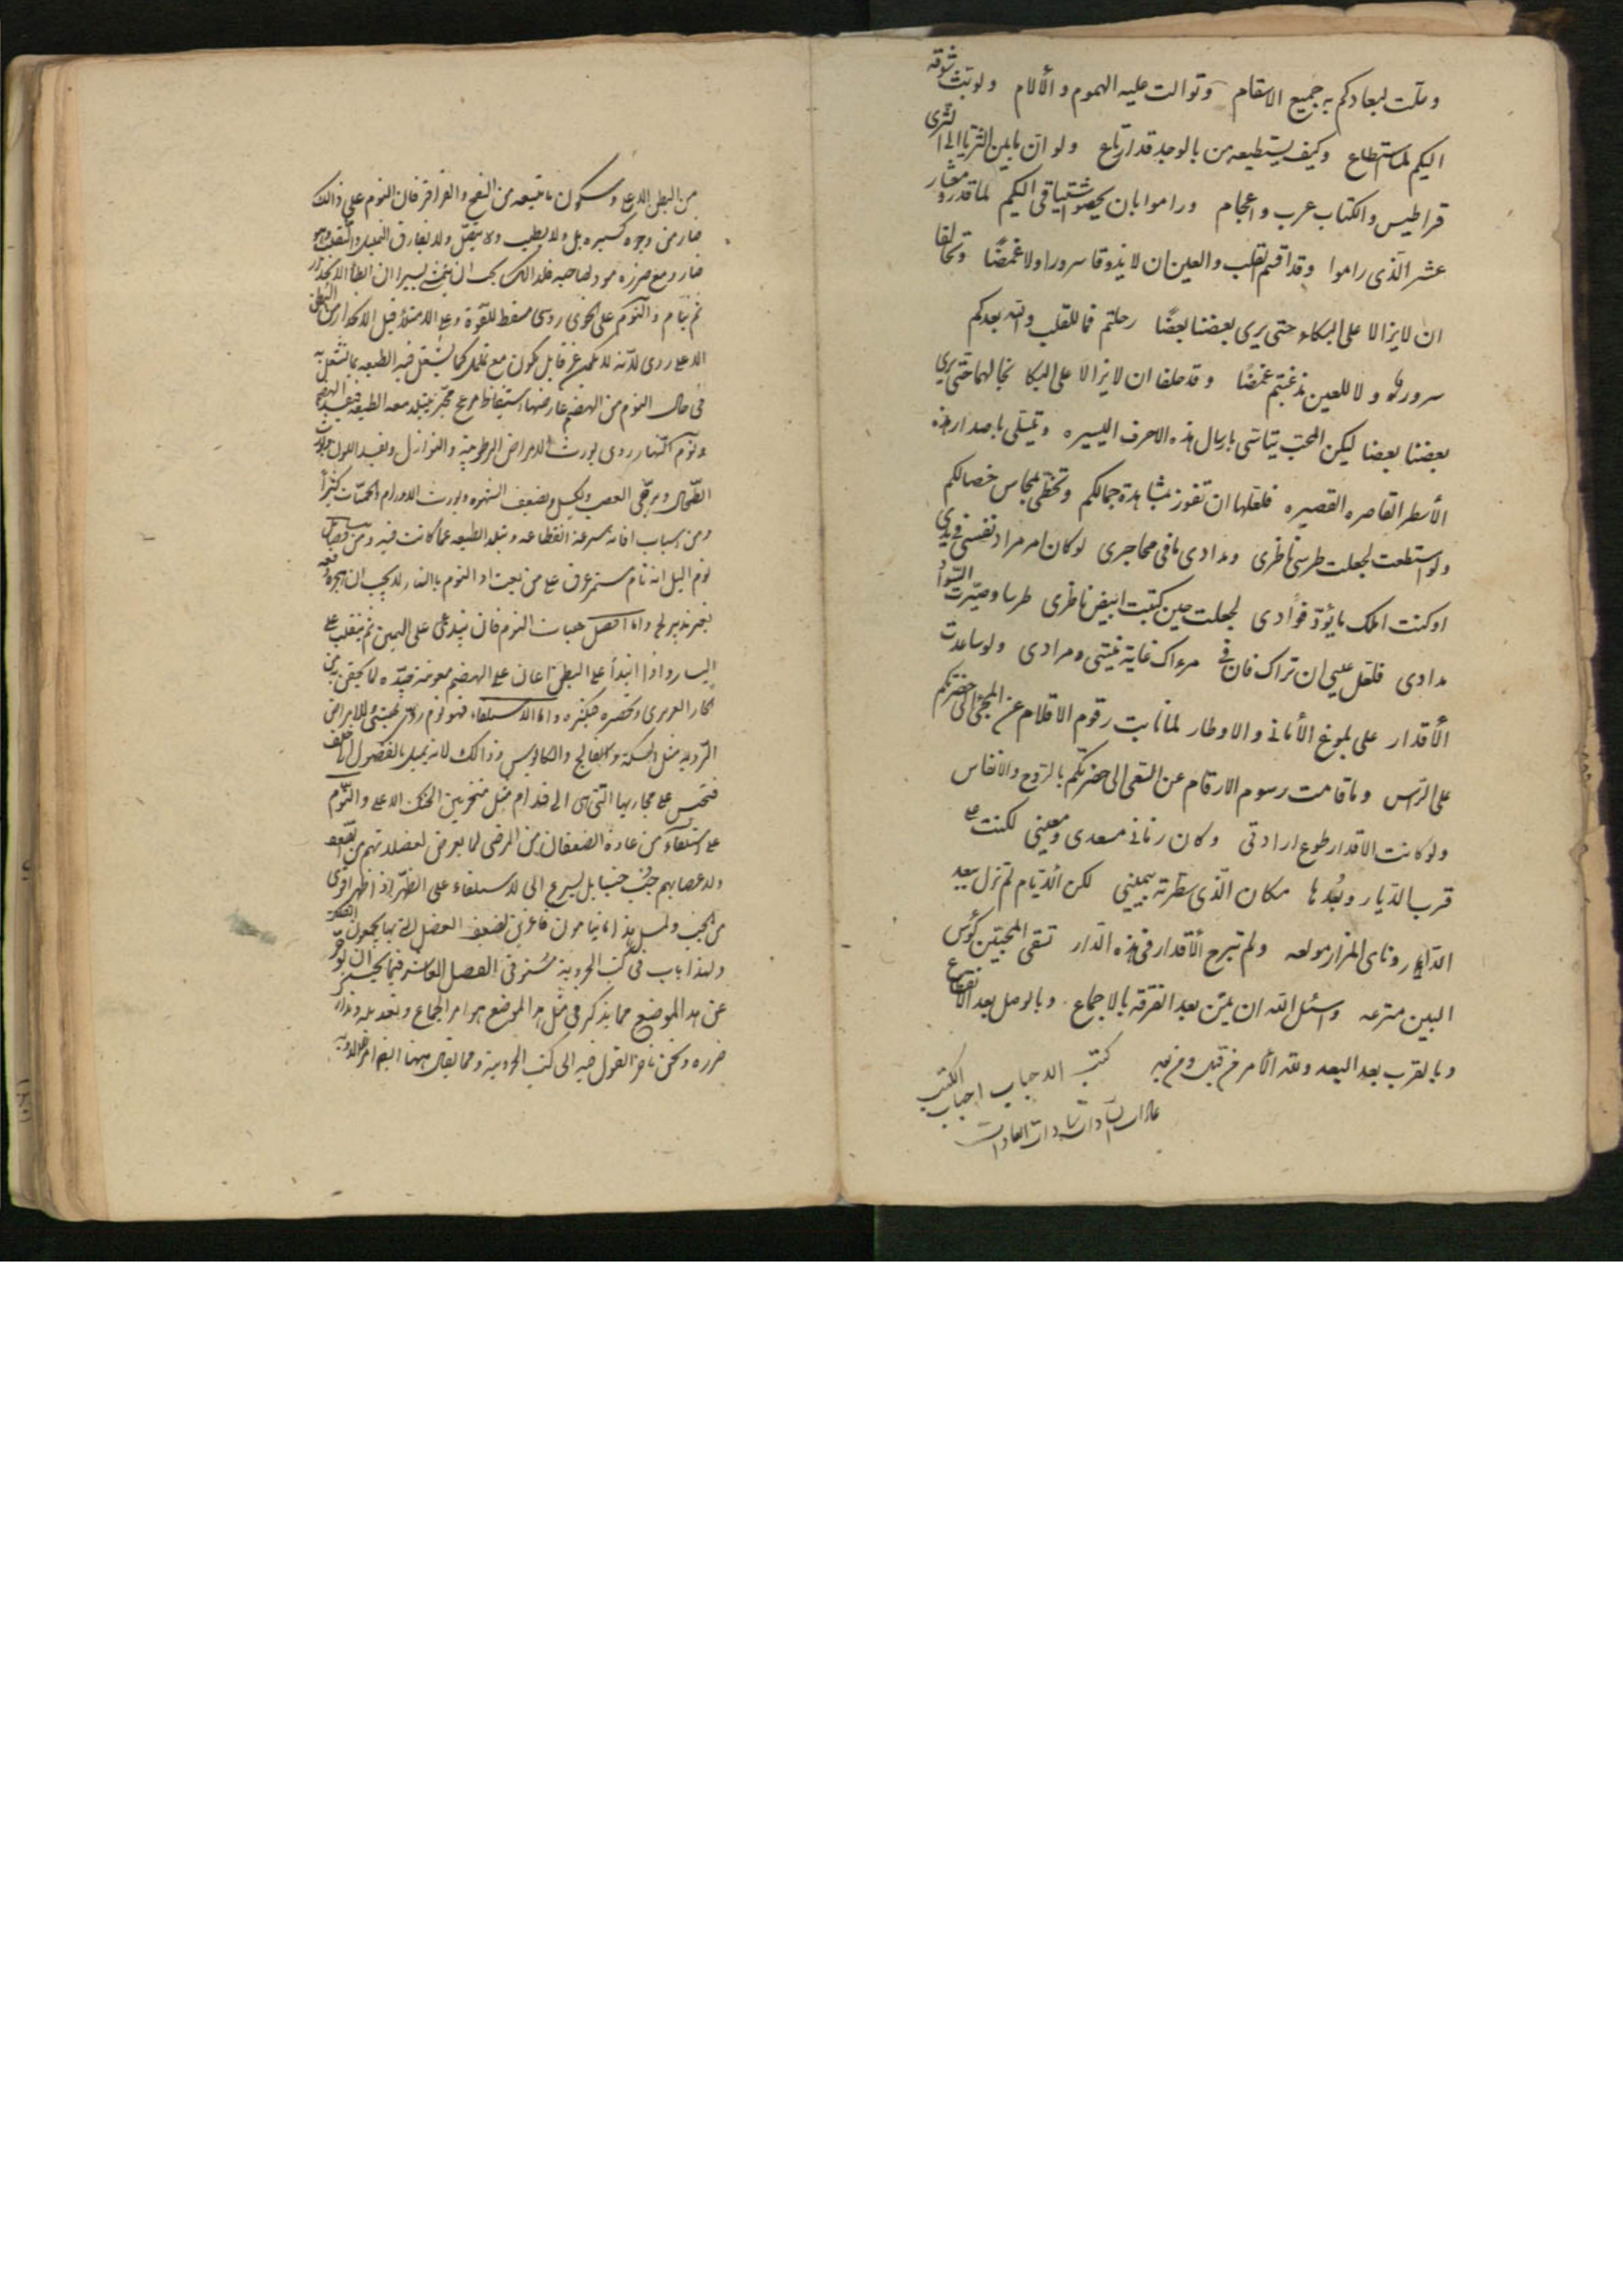 وملت لبعادكم به جميع الاسقام وتوالت عليه الهموم والألام ولو بث شوقه
اليكم لما استطاع وكيف يستطيعه من بالوجد قد ارتاع ولو ان ما بين الثريا الى الثرى
قراطيس والكتاب عرب واعجام وراموا بان يحصوا اشتياقي اليكم لما قدروا معشار
عشر الذى راموا وقد اقسم القلب والعين ان لا يذوقا سرورا ولا غمضًا وتحالفا
ان لا يزالا على البكاء حتى يرى بعضنا بعضًا رحلتم فما للقلب والله بعدكم
سرور ولا للعين مذ غبتم غمضًا وقد حلفا ان لا يزالا على البكا بحالهما حتى يرى
بعضنا بعضا ليكن المحب يتاسى بارسال هذه الاحرف اليسيره ويتسلى باصدار هذه
الأسطر القاصره القصيره فلعلها ان تفوز بمشاهدة جمالكم وتحظى بمحاسن خصالكم
ولو استطعت لجعلت طرسى ناظرى ومدادى ما فى محاجرى لو كان امر مراد نفسى فى يدى
او كنت املك ما يؤد فؤادى لجعلت حين كتبت ابيض ناظرى طرسا وصيّرت السواد
مدادى فلعل عينى ان تراك فان فى مرءاك غاية بغيتى ومرادى ولو ساعدت
الأقدار على بلوغ الأمانى والاوطار لما نابت رقوم الاقلام عن المجئ الى حضرتكم
على الراس وما قامت رسوم الارقام عن السعى الى حضرتكم بالروح والانفاس
ولو كانت الاقدار طوع ارادتى وكان زمانى مسعدى ومعينى لكنت على
قرب الديار وبُعدها مكان الذى سطرته بيمينى لكن الأيام لم تزل ببعد
الديار وناى المزار مولعه ولم تبرح الأقدار فى هذه الدار تسقى المحبين كؤس
البين مترعه واسئل الله ان يمن بعد الفرقه بالاجماع وبالوصل بعد الانقطاع
وبالقرب بعد البعد ولله الأمر من قبل ومن بعد كتب الاحباب احباب الكتب
عادات السادات سادات العادات
من البطن الاعلى وسكون ما يتبعه من النفخ والقراقر فان النوم على ذالك
ضار من وجوه كثيره بل ولا يطيب ولا يتصل ولا يفارق التململ والتقلب وهو
ضار ومع ضرره موذ لصاحبه فلذالك يجب ان يتمشى يسيرا ان ابطأ الانحدار
ثم ينام والنوم على الخوى ردى مسقط للقوة وعلى الامتلاء قبل الانحدار من البطن
الاعلى ردى لأنه لا يكون غرقا بل يكون مع تململ كما يشتغل فيه الطبيعه بما تشتغل به
فى حال النوم من الهضم عارضها استيقاظ مزعج محير فيتبلد معه الطبيعه فيفسد الهضم
ونوم النهار ردى يورث الامراض الرطوبية والنوازل ويفسد اللون ويورث
الطحال ويرخى العصب ويكسل ويضعف الشهوه ويورث الاورام والحميات كثيرًا
ومن اسباب افاته سرعة انقطاعه وتبلد الطبيعه عما كانت فيه ومن فضايل
نوم الليل انه تام مستمر غرق على من يعتاد النوم بالنهار لا يجب ان يهجره دفعه
بغير تدريج واما افضل هيات النوم فان يبتدى على اليمين ثم ينقلب على
اليسار واذا ابتدأ على البطن اعان على الهضم معونة جيّده لما يحقن به من
الحار الغريزى ويحصره فيكثره واما الاستلقاء فهو نوم ردى يهيئ للامراض
الرديه مثل السكتة والفالج والكابوس وذالك لانه يميل بالفضول الى خلف
فتحتبس عن مجاريها التى هى الى قدام مثل المنخرين والحنك الاعلى والنوم
على الاستلقاء من عادة الضعفاء من المرضى لما يعرض لعضلاتهم من الضعف
ولاعضايهم فلا يحمل جنب جنبا بل يسرع الى الاستلقاء على الظهر اذ الظهر اقوى
من الجنب ولمثل هذا ما ينامون فاغرين لضعف العضل التى بها يجمعون الفكين
ولهذا باب فى كتب الجزوية مستوفى الفصل العاشر فيما يجب ان يؤخر
عن هذا الموضع مما يذكر فى مثل هذا الموضع هو امر الجماع وتعديله وتدارك
ضرره ونحن نؤخر القول فيه الى كتب الجزوية ومما يقال ههنا ايضا امر الادويه